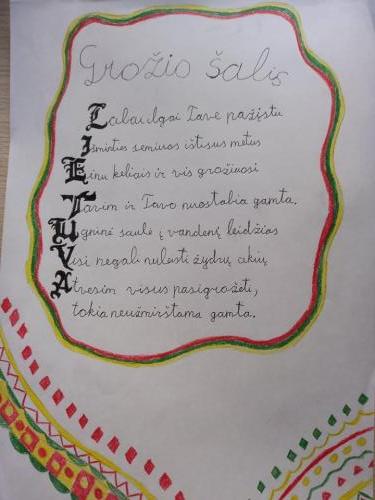 Grožio šalis
Labai ilgai Tave pažįstu
Išminties semiuos ištisus metus
Einu keliais ir vis grožiuosi
Tavim ir Tavo nuostabia gamta.
Ugninė saulė į vandenį leidžias
Visi negali nuleisti žydrų akių
Atvesim visus pasigrožėti,
tokia neužmirštama gamta.